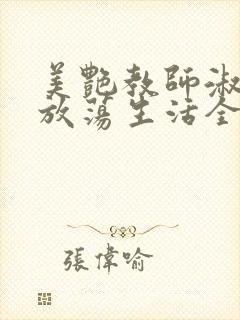 美艷教師淑
放蕩生活全
張偉喻